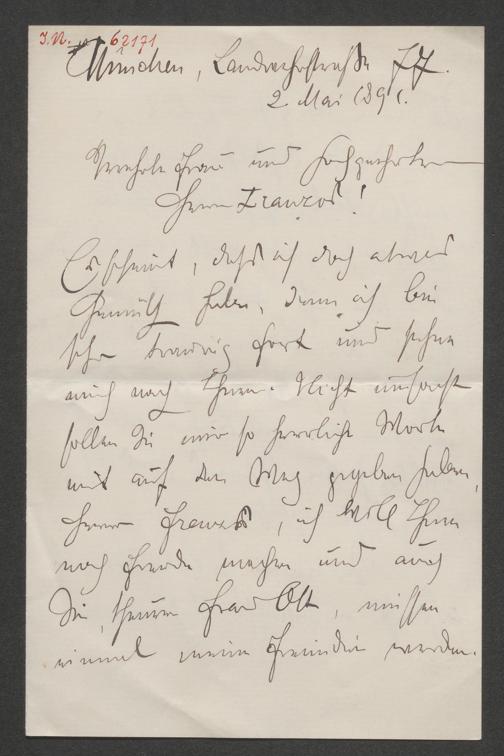 I.N. 62171
München, Landwehrstraße 77.
2. Mai 1891.
Verehrte Frau und hochgeehrter
Herr Franzos!
Es scheint, daß ich doch etwas
Gemüth habe, denn ich bin
sehr traurig fort und sehne
mich nach Ihnen. Nicht umsonst
sollen Sie mir so herrliche Worte
mit auf den Weg gegeben haben,
Herr Franzos, ich will Ihnen
noch Freude machen und auch
Sie, theure Frau Ott, müssen
einmal meine Freundin werden.